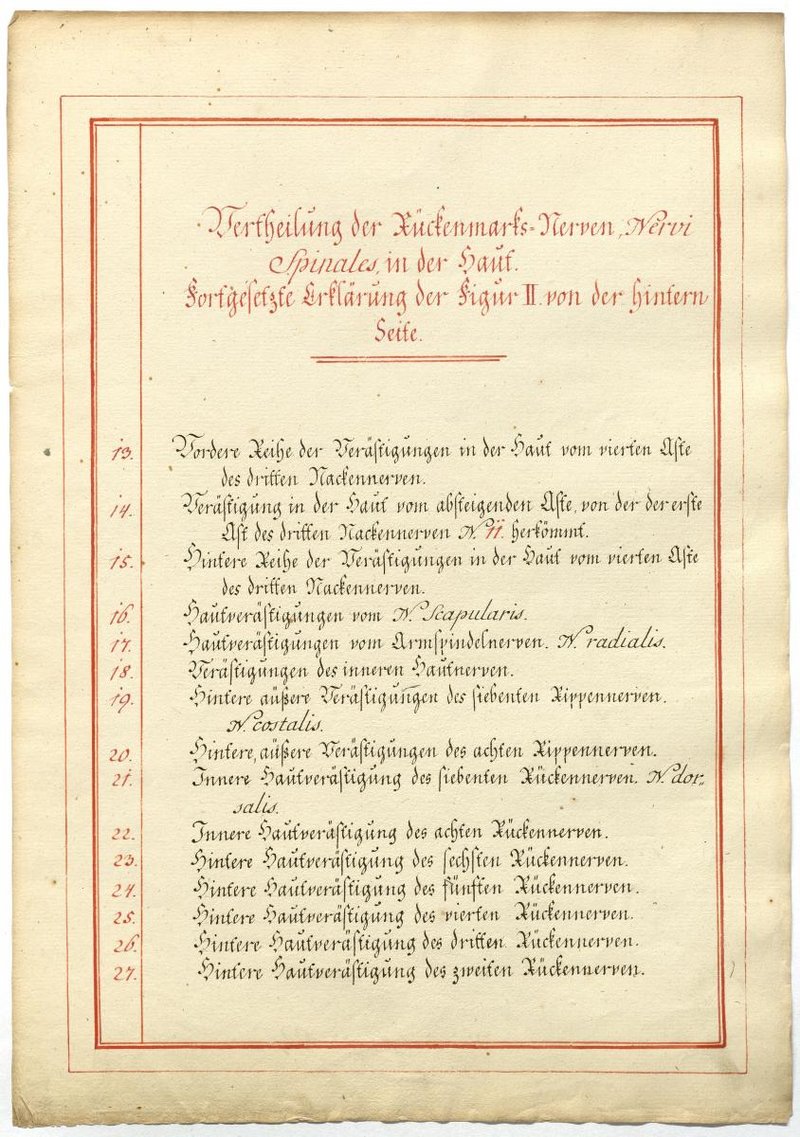 Vertheilung der Rückenmarks-Nerven, Nervi
Spinales, in der Haut.
Fortgesetzte Erklärung der Figur II. von der hintern
Seite.
13. Vordere Reihe der Verästigungen in der Haut vom vierten Aste
des dritten Nackennerven.
14. Verästigung in der Haut vom absteigenden Aste, von der der erste
Ast des dritten Nackennerven N. 11. herkömmt.
15. Hintere Reihe der Verästigungen in der Haut vom vierten Aste
des dritten Nackennerven.
16. Hautverästigungen vom N. Scapularis.
17. Hautverästigungen vom Armspindelnerven. N. radialis.
18. Verästigungen des inneren Hautnerven.
19. Hintere äußere Verästigungen des siebenten Rippennerven.
N. costalis.
20. Hintere, äußere Verästigungen des achten Rippennerven.
21. Innere Hautverästigung des siebenten Rückennerven. N. dor-
salis.
22. Innere Hautverästigung des achten Rückennerven.
23. Hintere Hautverästigung des sechsten Rückennerven.
24. Hintere Hautverästigung des fünften Rückennerven.
25. Hintere Hautverästigung des vierten Rückennerven.
26. Hintere Hautverästigung des dritten Rückennerven.
27. Hintere Hautverästigung des zweiten Rückennerven.